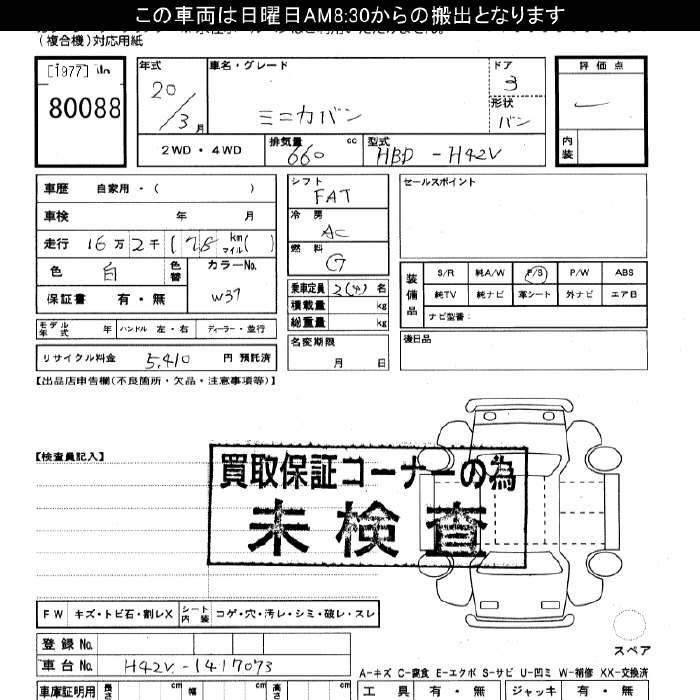 この車両は日曜日AM8:30からの搬出となります
(複合機)対応用紙
[1977]
80088
年式
20/3月
車名・グレード
ミニカバン
ドア
3
形状
バン
2WD・4WD
排気量
660 cc
型式
HBD-H42V
評価点
内装
車歴 自家用・( )
車検 年 月
走行 16万2千(78 km マイル( )
色 白 色替
カラーNo.
W37
保証書 有・無
モデル年式 年 ハンドル 左・右 ディーラー・並行
リサイクル料金 5,410 円 預託済
シフト
FAT
冷房
AC
燃料
G
乗車定員 2(4) 名
積載量 kg
総重量 kg
名変期限
月 日
セールスポイント
装備品
S/R 純A/W P/S P/W ABS
純TV 純ナビ 革シート 外ナビ エアB
ナビ型番:
後日品
【出品店申告欄(不良箇所・欠品・注意事項等)】
【検査員記入】
買取保証コーナーの為
未検査
FW キズ・トビ石・割レX シート内装 コゲ・穴・汚レ・シミ・破レ・スレ
登録No.
車台No. H42V-1417073
スペア
A-キズ C-腐食 E-エクボ S-サビ U-凹ミ W-補修 XX-交換済
車庫証明用 長さ cm 幅 cm 高さ cm
工具 有・無 ジャッキ 有・無